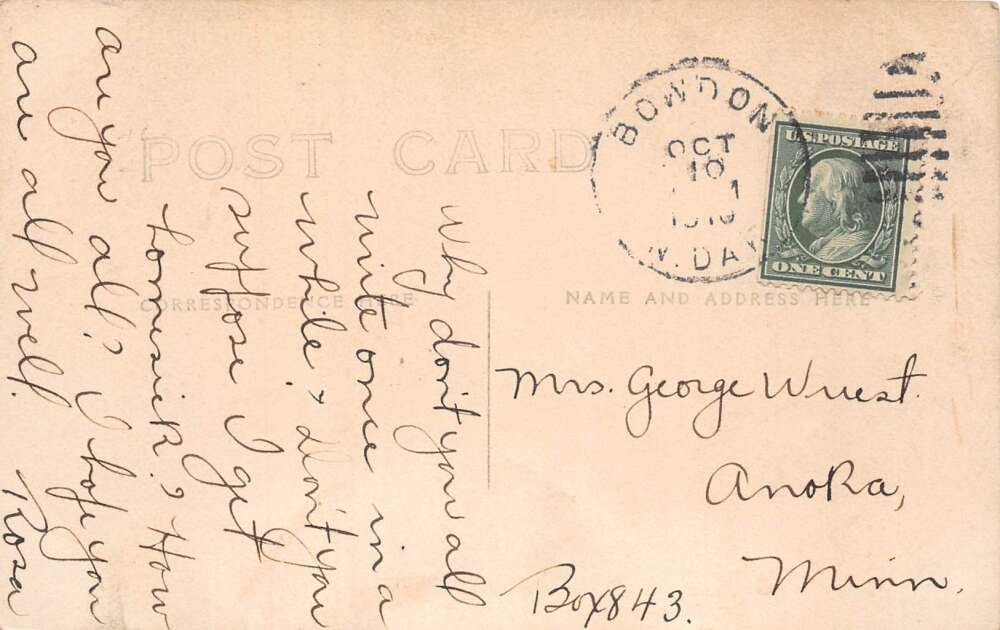 POST CARD
CORRESPONDENCE HERE
NAME AND ADDRESS HERE
BOWDON
OCT
10
1
1910
N. DAK
U.S. POSTAGE
ONE CENT
Why don't you all
write once in a
while. & don't you
suppose I get
homesick? How
are you all? I hope you
are all well. Rosa
Mrs. George Wuest.
Anoka,
Minn.
Box 843.